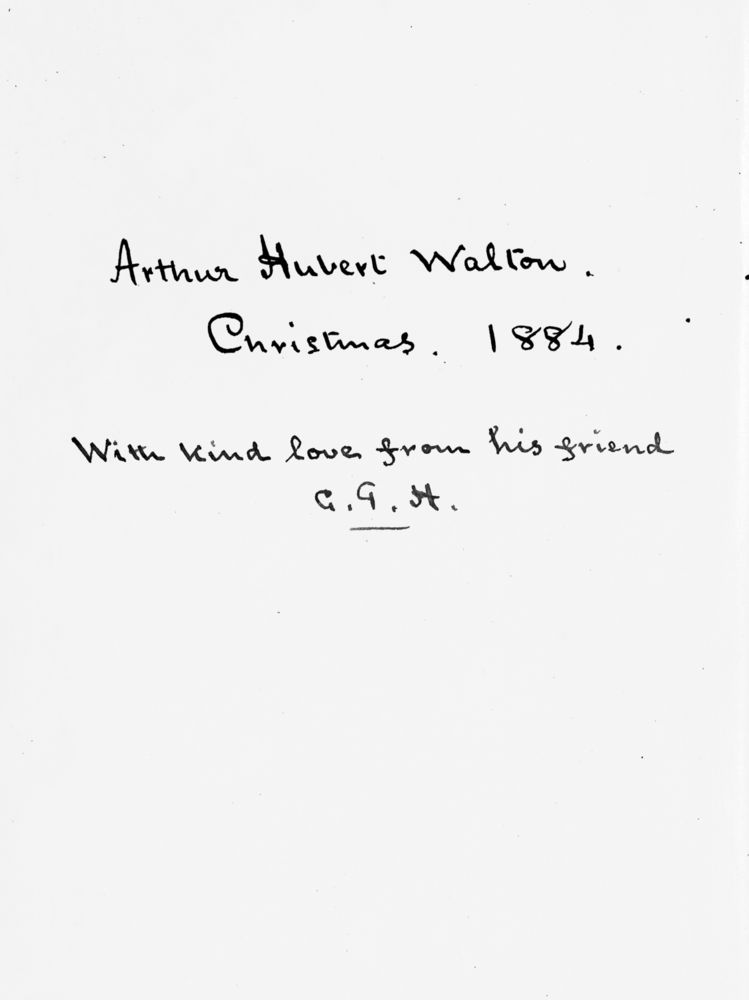 Arthur Hubert Walton.
Christmas. 1884.
With kind love from his friend
G.G.H.